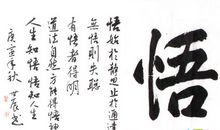 悟
悟始於静思止於通達
無悟則失聪
有悟者得明
道法自然方能得悟神
人生知悟悟知人生
庚寅年秋